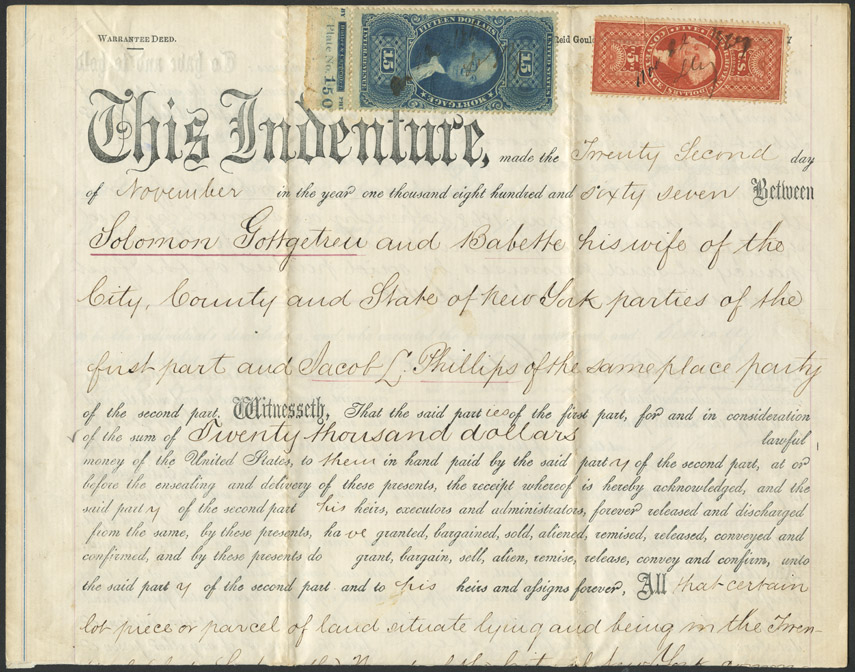 WARRANTEE DEED.
FIFTEEN DOLLARS
15 15
MORTGAGE
INTER. REV.
UNITED STATES
Plate No. 150
FIVE
U.S.
This Indenture, made the Twenty Second day
of November in the year one thousand eight hundred and sixty seven Between
Solomon Gottgetreu and Babette his wife of the
City, County and State of New York parties of the
first part and Jacob L. Phillips of the same place party
of the second part, Witnesseth, That the said parties of the first part, for and in consideration
of the sum of Twenty thousand dollars lawful
money of the United States, to them in hand paid by the said party of the second part, at or
before the ensealing and delivery of these presents, the receipt whereof is hereby acknowledged, and the
said party of the second part his heirs, executors and administrators, forever released and discharged
from the same, by these presents, have granted, bargained, sold, aliened, remised, released, conveyed and
confirmed, and by these presents do grant, bargain, sell, alien, remise, release, convey and confirm, unto
the said party of the second part and to his heirs and assigns forever, All that certain
lot piece or parcel of land situate lying and being in the Twen-